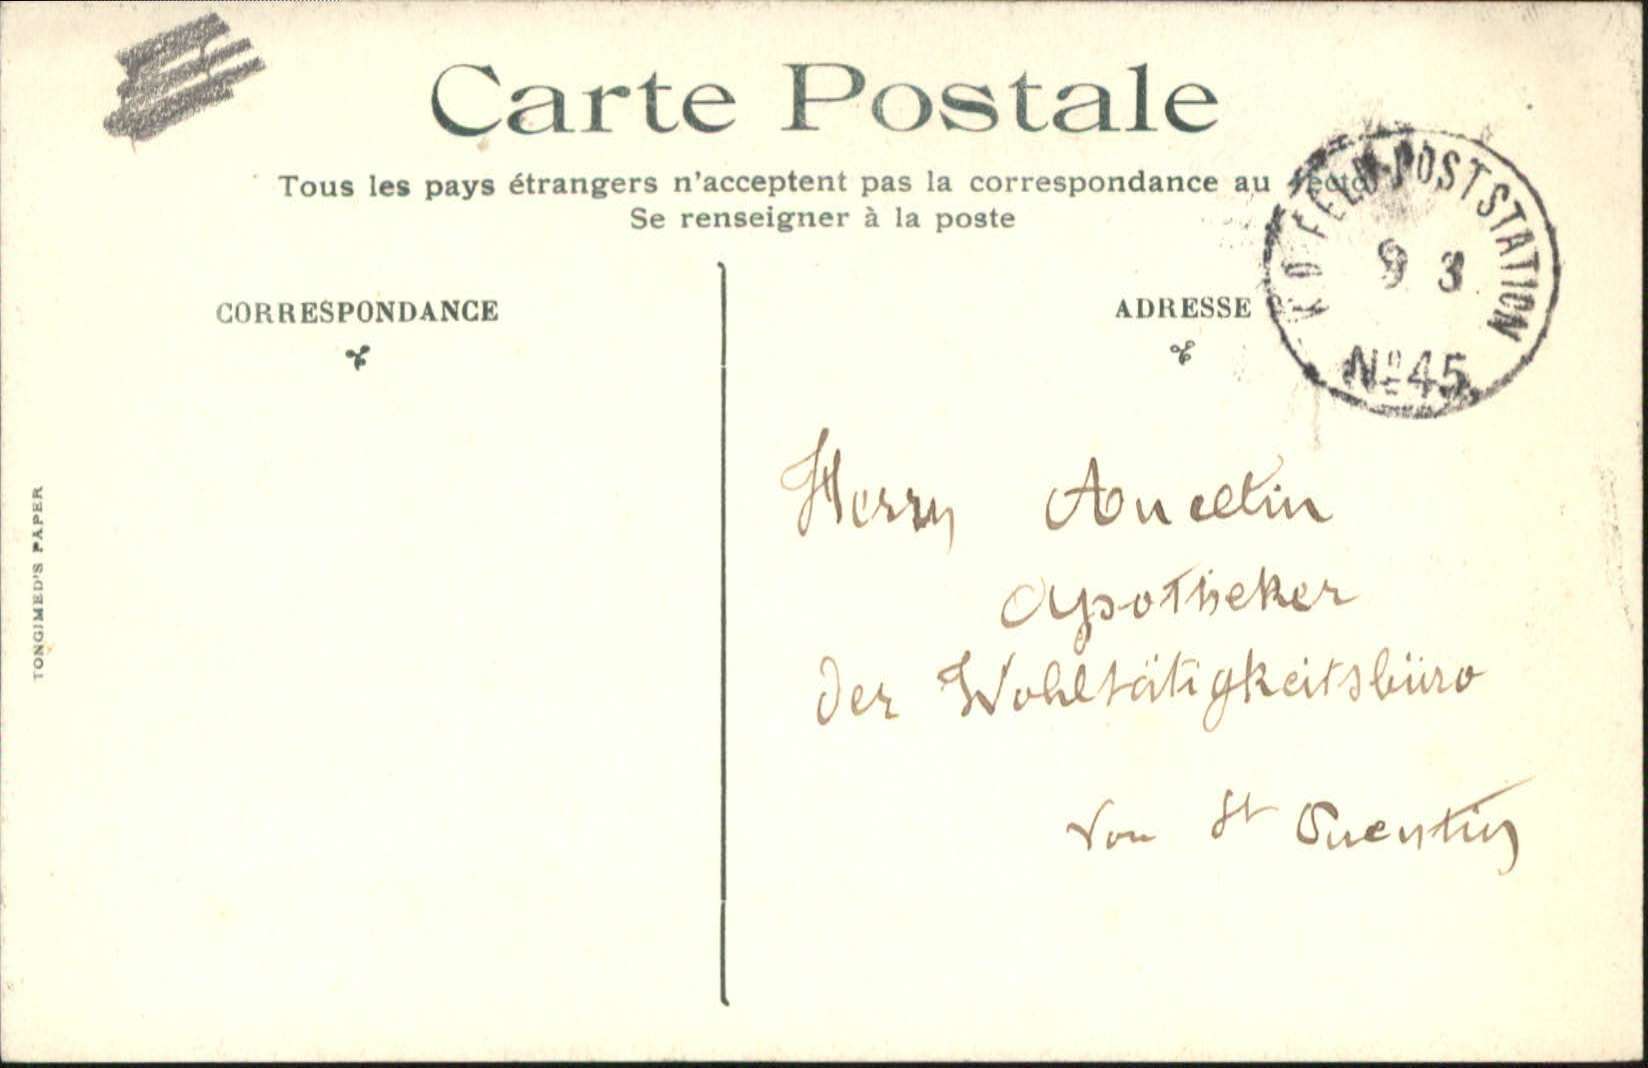 Carte Postale
Tous les pays étrangers n'acceptent pas la correspondance au recto
Se renseigner à la poste
CORRESPONDANCE
ADRESSE
K.D. FELD-POSTSTATION
9 3
No 45
TONGIMED'S PAPER
Herrn Ancelin
Apotheker
der Wohltätigkeitsbüro
von St Quentin